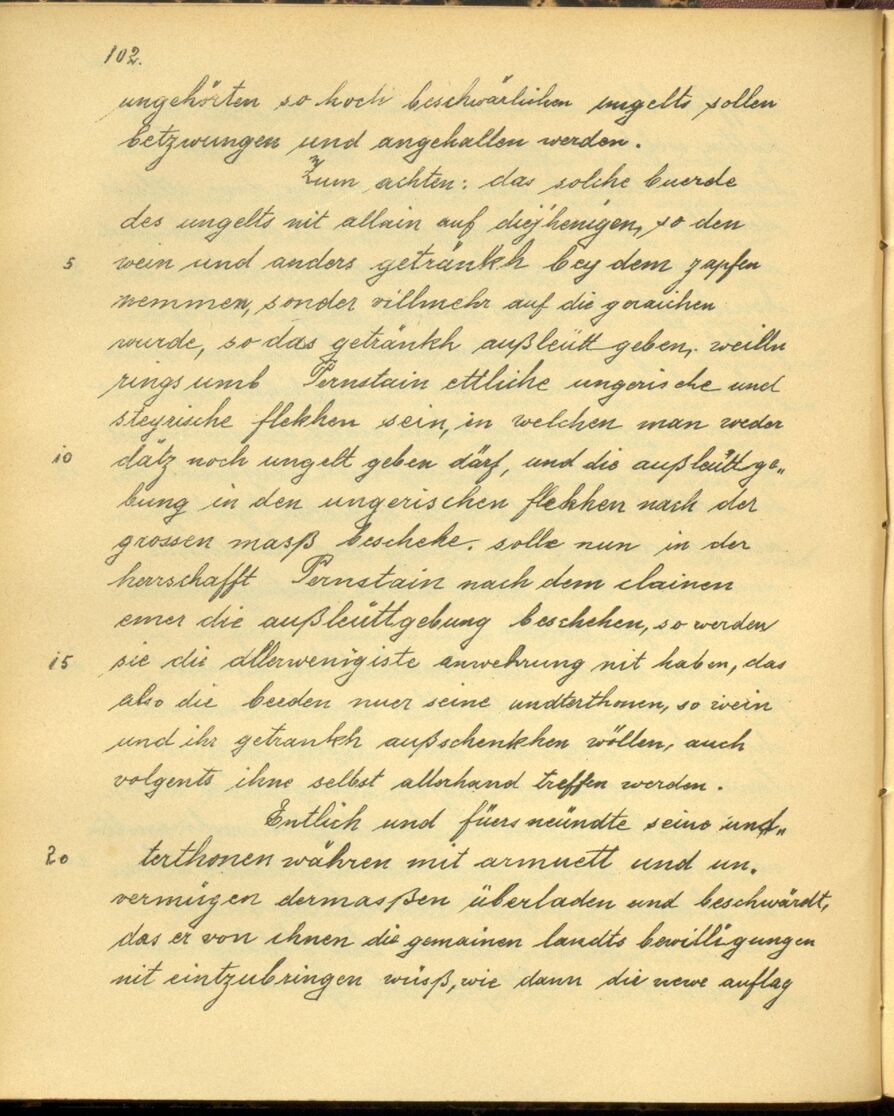 102.
ungehörten so hoch beschwärlichen ungelts sollen
betzwungen und angehallen werden.
Zum achten: das solche buerde
des ungelts nit allain auf diejhenigen, so den
5 wein und anders getränkh bey dem zapfen
nemmen, sonder villmehr auf die geraichen
wurde, so das getränkh außleütt geben, weilln
rings umb Pernstain ettliche ungerische und
steyrische flekhen sein, in welchen man weder
10 dätz noch ungelt geben därf, und die außleüttge„
bung in den ungerischen flekhen nach der
grossen masß bescheke. solle nun in der
herrschafft Pernstain nach dem clainen
emer die außleüttgebung beschehen, so werden
15 sie die allerwenigiste anwehrung nit haben, das
also die beeden nuer seine undterthonen, so wein
und ihr getrankh außschenkhen wöllen, auch
volgents ihne selbst allerhand treffen werden.
Entlich und füers neündte seine und„
20 terthonen währen mit armuett und un.
vermügen dermasßen überladen und beschwärdt,
das er von ihnen die gemainen landts bewilligungen
nit eintzubringen wüsß, wie dann die newe auflag